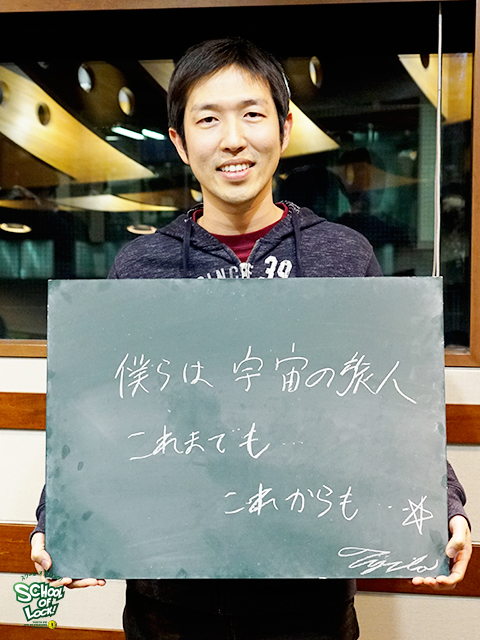 SINCE 39
僕らは 宇宙の旅人
これまでも…
これからも…☆
SCHOOL
OF
LOCK!